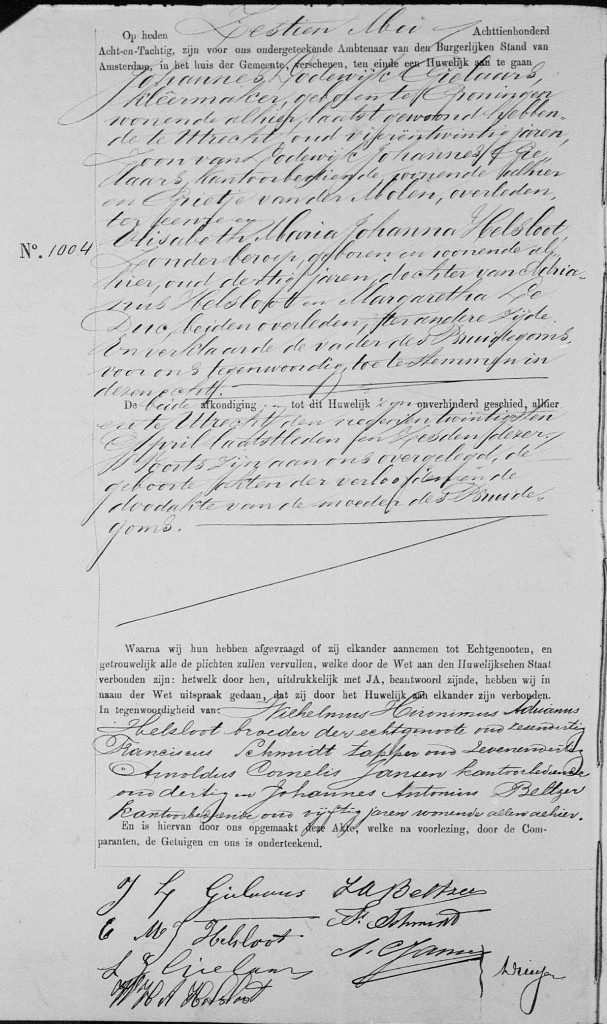 Op heden Zestien Mei Achttienhonderd
Acht-en-Tachtig, zijn voor ons ondergeteekende Ambtenaar van den Burgerlijken Stand van
Amsterdam, in het huis der Gemeente, verschenen, ten einde een Huwelijk aan te gaan
Johannes Lodewijk Gielaars,
kleermaker, geboren te Groningen
wonende alhier, laatst gewoond hebben-
de te Utrecht oud vijfentwintig jaren,
Zoon van Lodewijk Johannes Gie-
laars, kantoorbediende, wonende alhier
en Grietje van der Molen, overleden,
ter eenre en
No. 1004
Elisabeth Maria Johanna Helsloot,
zonder beroep, geboren en wonende al-
hier, oud dertig jaren, dochter van Adria-
nus Helsloot en Margaretha Le
Duc, beiden overleden, ter andere zijde.
En verklaarde de vader des Bruidegoms,
voor ons tegenwoordig, toe te stemmen in
dezen echt.
De beide afkondiging en tot dit Huwelijk zijn onverhinderd geschied, alhier
en te Utrecht den negenentwintigsten
April laatstleden en zesden dezer.
Voorts zijn aan ons overgelegd, de
geboorte akten der verloofden en de
doodakte van de moeder des Bruide-
goms.
Waarna wij hun hebben afgevraagd of zij elkander aannemen tot Echtgenooten, en
getrouwelijk alle de plichten zullen vervullen, welke door de Wet aan den Huwelijkschen Staat
verbonden zijn: hetwelk door hen, uitdrukkelijk met JA, beantwoord zijnde, hebben wij in
naam der Wet uitspraak gedaan, dat zij door het Huwelijk aan elkander zijn verbonden.
In tegenwoordigheid van: Wilhelmus Hironimus Adrianus
Helsloot broeder der echtgenoote oud zesendertig
Franciscus Schmidt tapper oud zevenendertig
Arnoldus Cornelis Jansen kantoorbediende
oud dertig en Johannes Antonius Beltzer
kantoorbediende oud vijftig jaren wonende allen alhier.
En is hiervan door ons opgemaakt deze Akte, welke na voorlezing, door de Com-
paranten, de Getuigen en ons is onderteekend.
J L Gielaars
J A Beltzer
E M J Helsloot
F. Schmidt
L J Gielaars
A. C. Jansen
W H A Helsloot